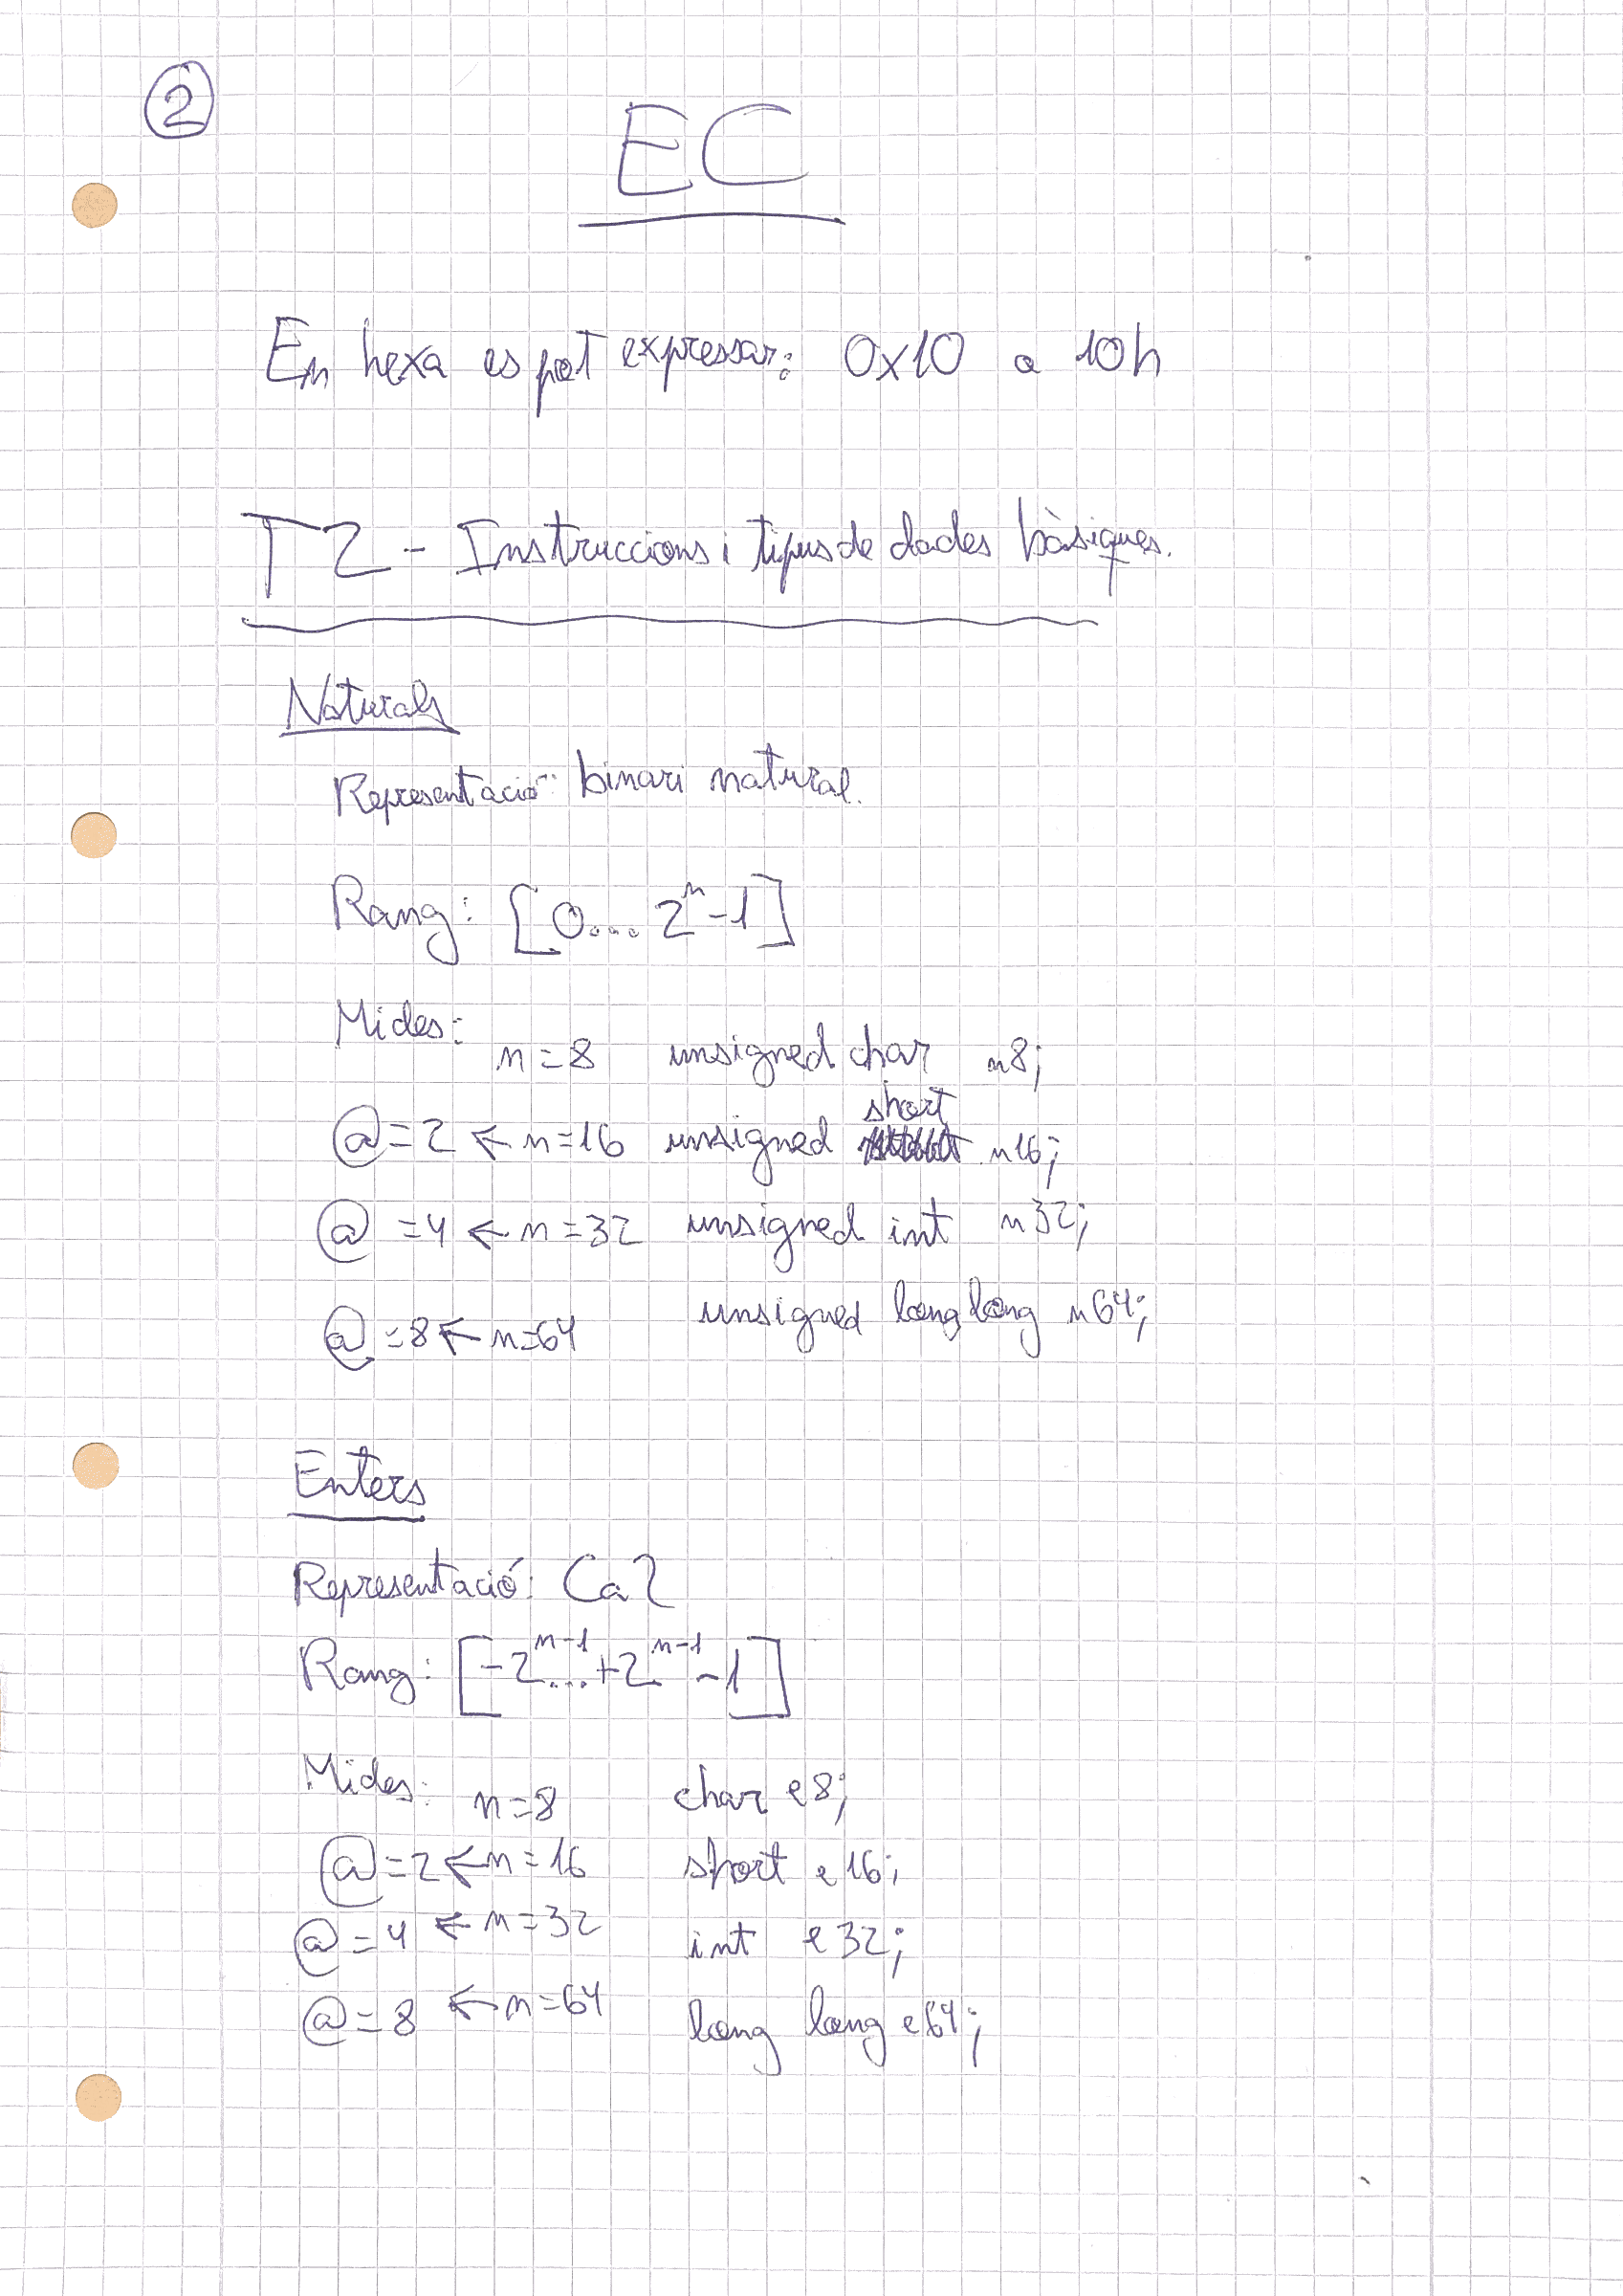 2
EC
En hexa es pot expressar: 0x10 o 10h
T2 - Instruccions i tipus de dades bàsiques.
Naturals
Representació: binari natural.
Rang: [0... 2^n - 1]
Mides:
n=8 unsigned char n8;
@=2 ← n=16 unsigned short n16;
@=4 ← n=32 unsigned int n32;
@=8 ← n=64 unsigned long long n64;
Enters
Representació: Ca2
Rang: [-2^n-1... +2^n-1 - 1]
Mides: n=8 char e8;
@=2 ← n=16 short e16;
@=4 ← n=32 int e32;
@=8 ← n=64 long long e64;